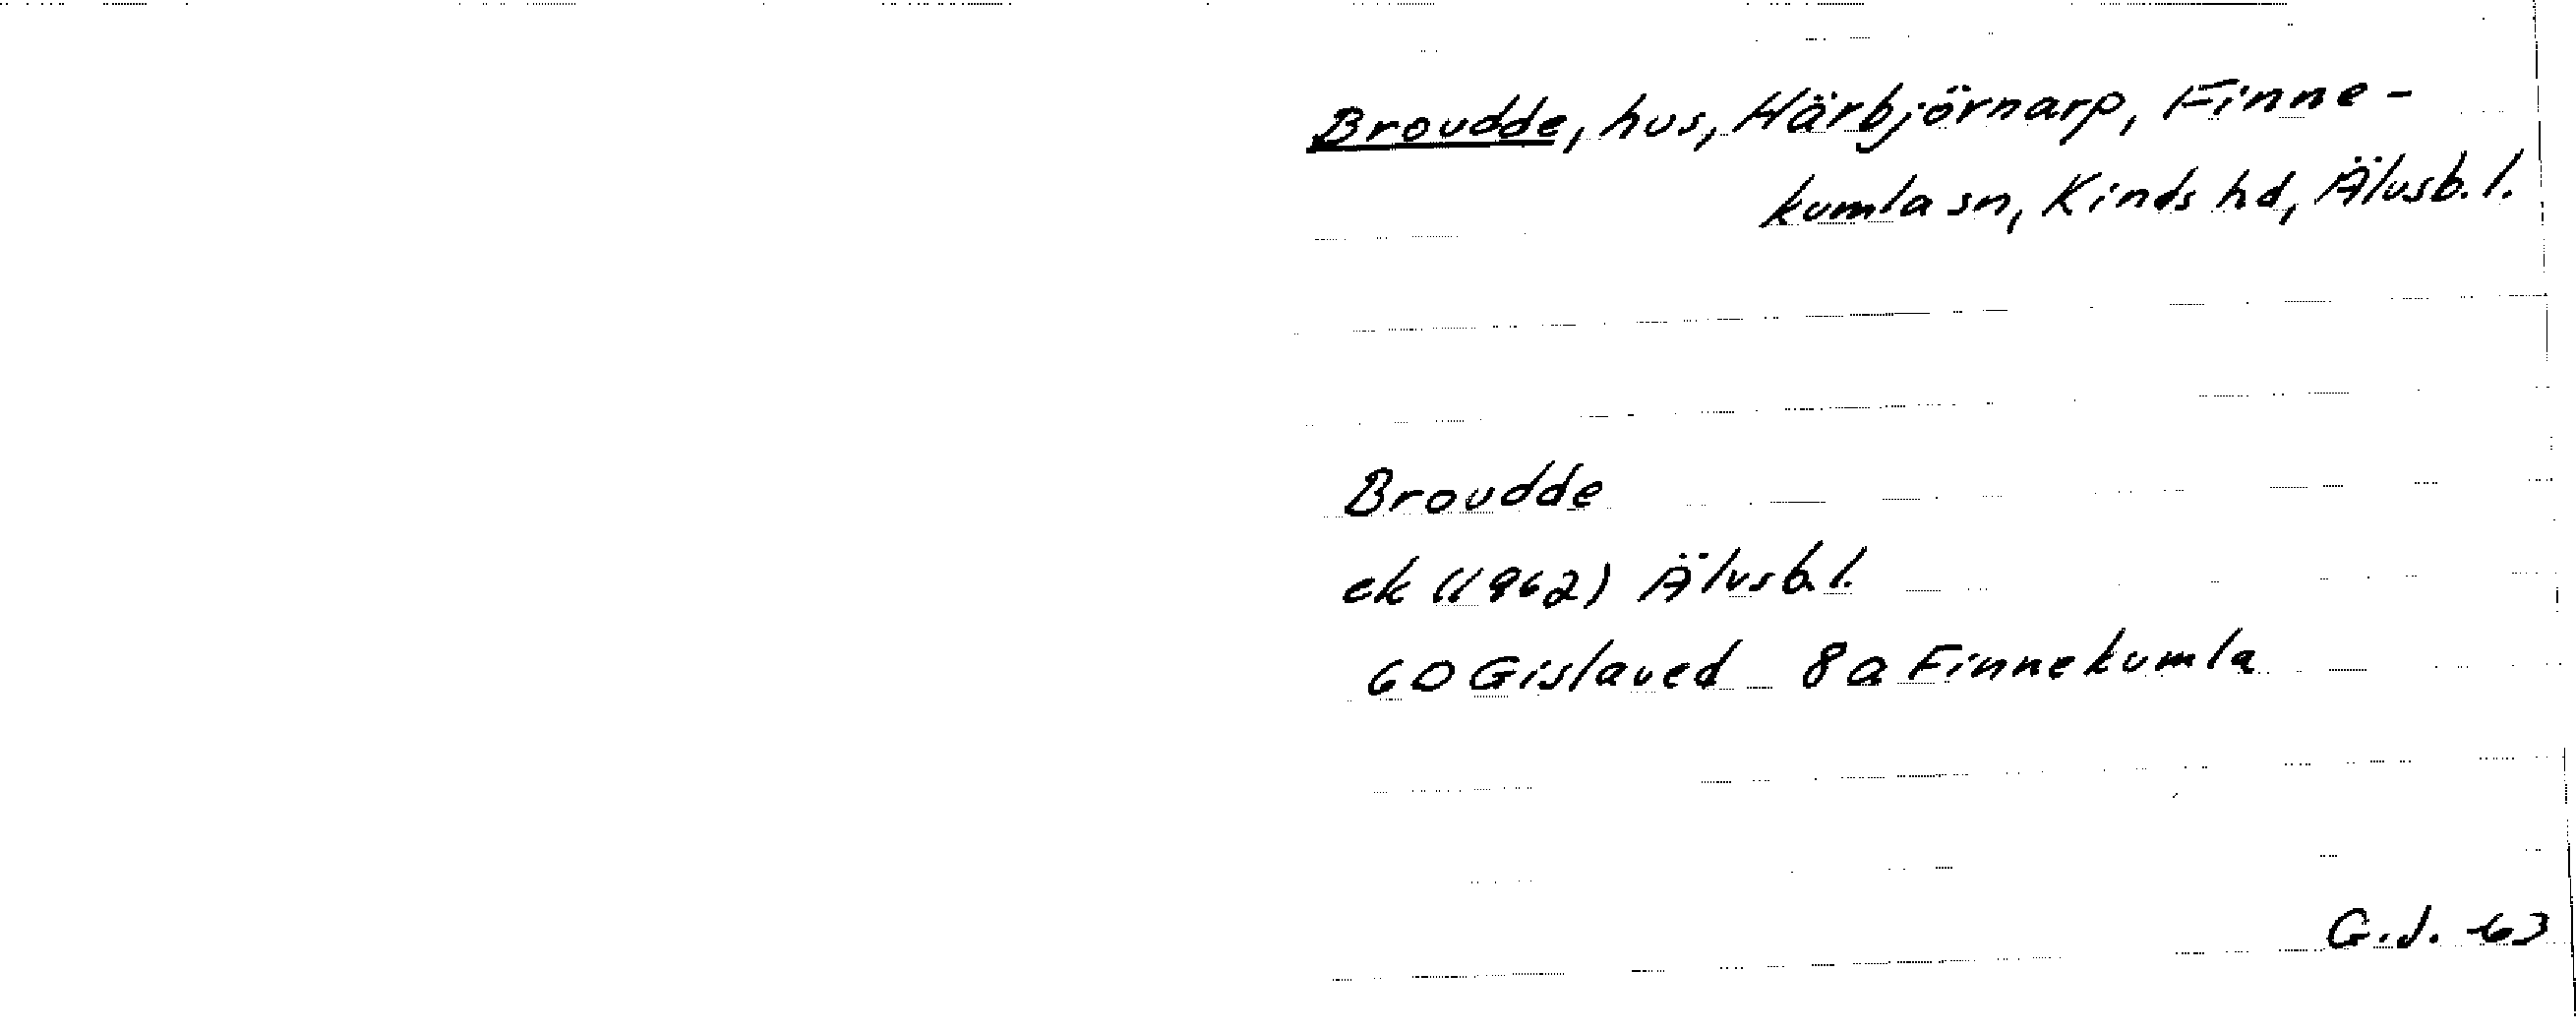 Broudde, hus, Härbjörnarp, Finne-
kumla sn, Kinds hd, Älvsb. l.
Broudde
ek (1962) Älvsb. l.
6D Gislaved 8a Finnekumla
G.J. -63